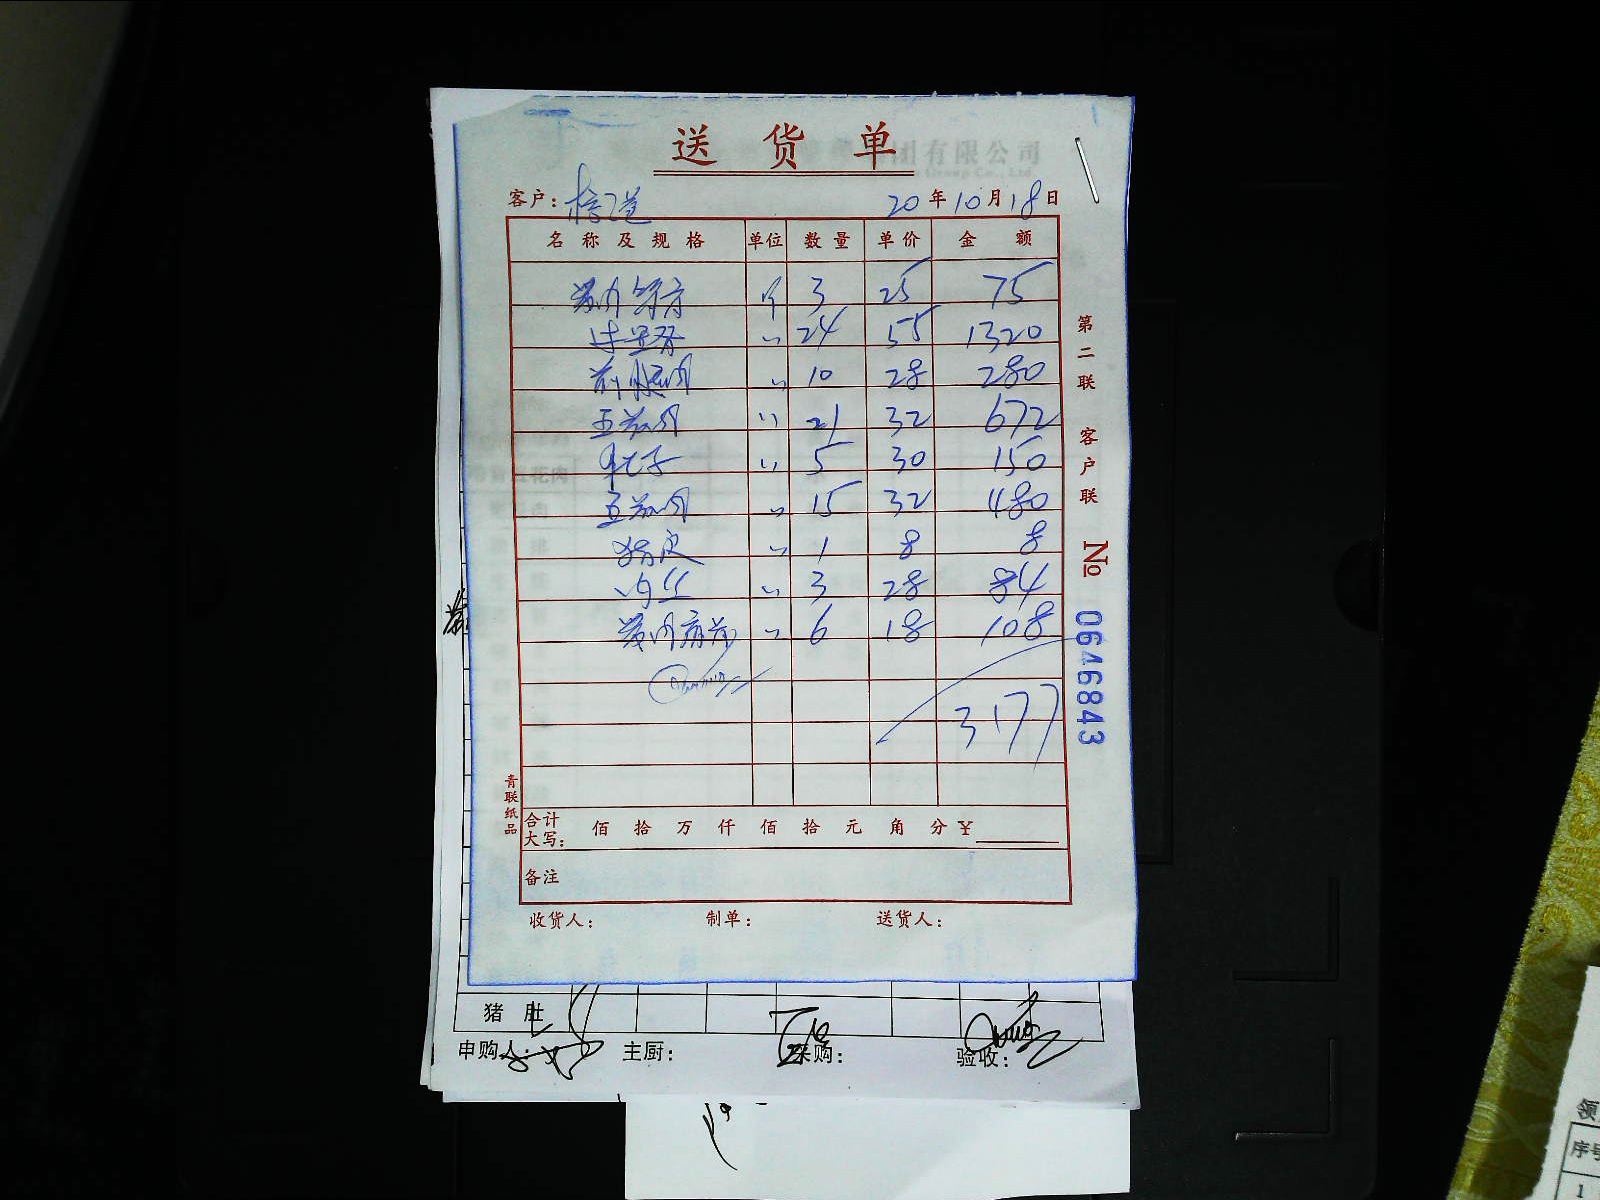 送货单
团有限公司
Group Co., Ltd.
客户：
20年10月18日
名称及规格 单位 数量 单价 金额
个 3 25 75
〃 24 55 1320
前腿肉 〃 10 28 280
五花肉 〃 21 32 672
肚子 〃 5 30 150
五花肉 〃 15 32 480
猪皮 〃 1 8 8
肉丝 〃 3 28 84
〃 6 18 108
3177
合计大写： 佰 拾 万 仟 佰 拾 元 角 分 ¥
备注
收货人： 制单： 送货人：
第二联 客户联
№ 0646843
青联纸品
猪肚
申购人： 主厨： 采购： 验收：
领
序号
1